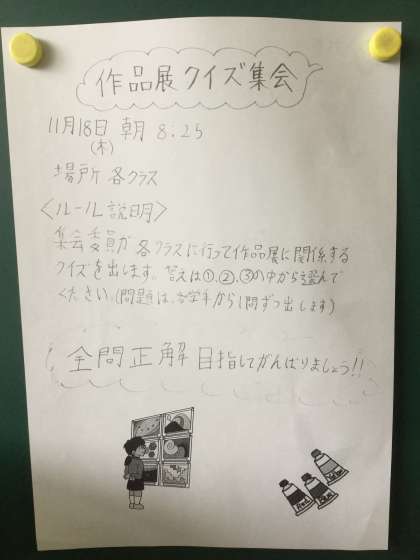 作品展クイズ集会
11月18日 朝 8:25
(木)
場所 各クラス
〈ルール説明〉
集会委員が各クラスに行って作品展に関係する
クイズを出します。答えは①,②,③の中から選んで
ください。(問題は、各学年から1問ずつ出します)
全問正解目指してがんばりましょう!!